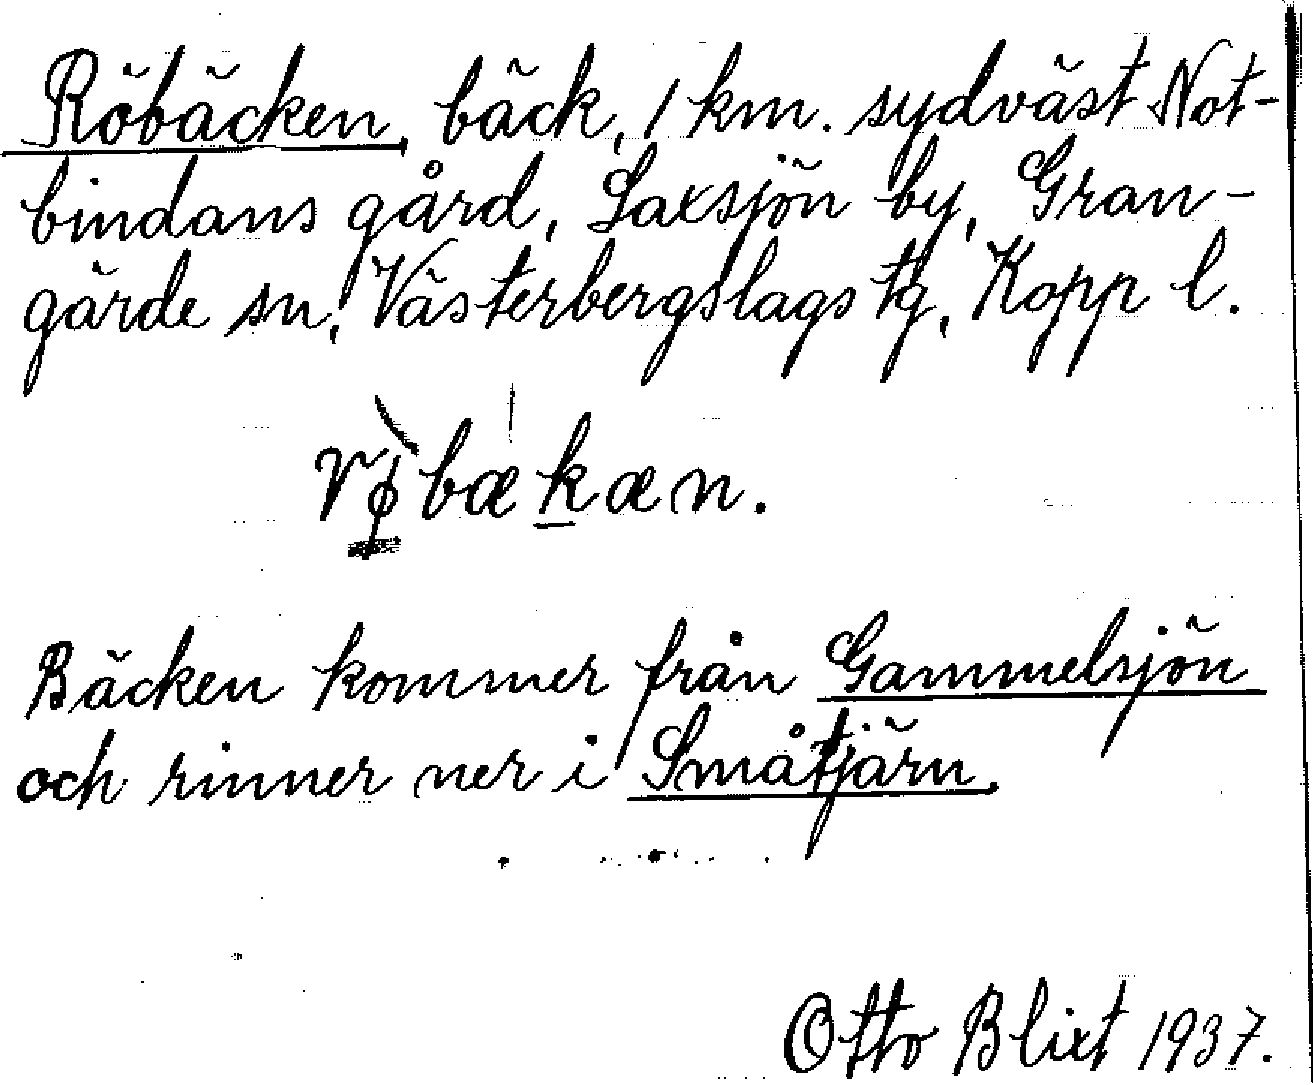 Röbäcken, bäck, 1 km. sydväst Not-
bindans gård, Saxsjön by, Gran-
gärde sn, Västerbergslags tg, Kopp l.
rø̀bækæn.
Bäcken kommer från Gammelsjön
och rinner ner i Småtjärn.
Otto Blixt 1937.